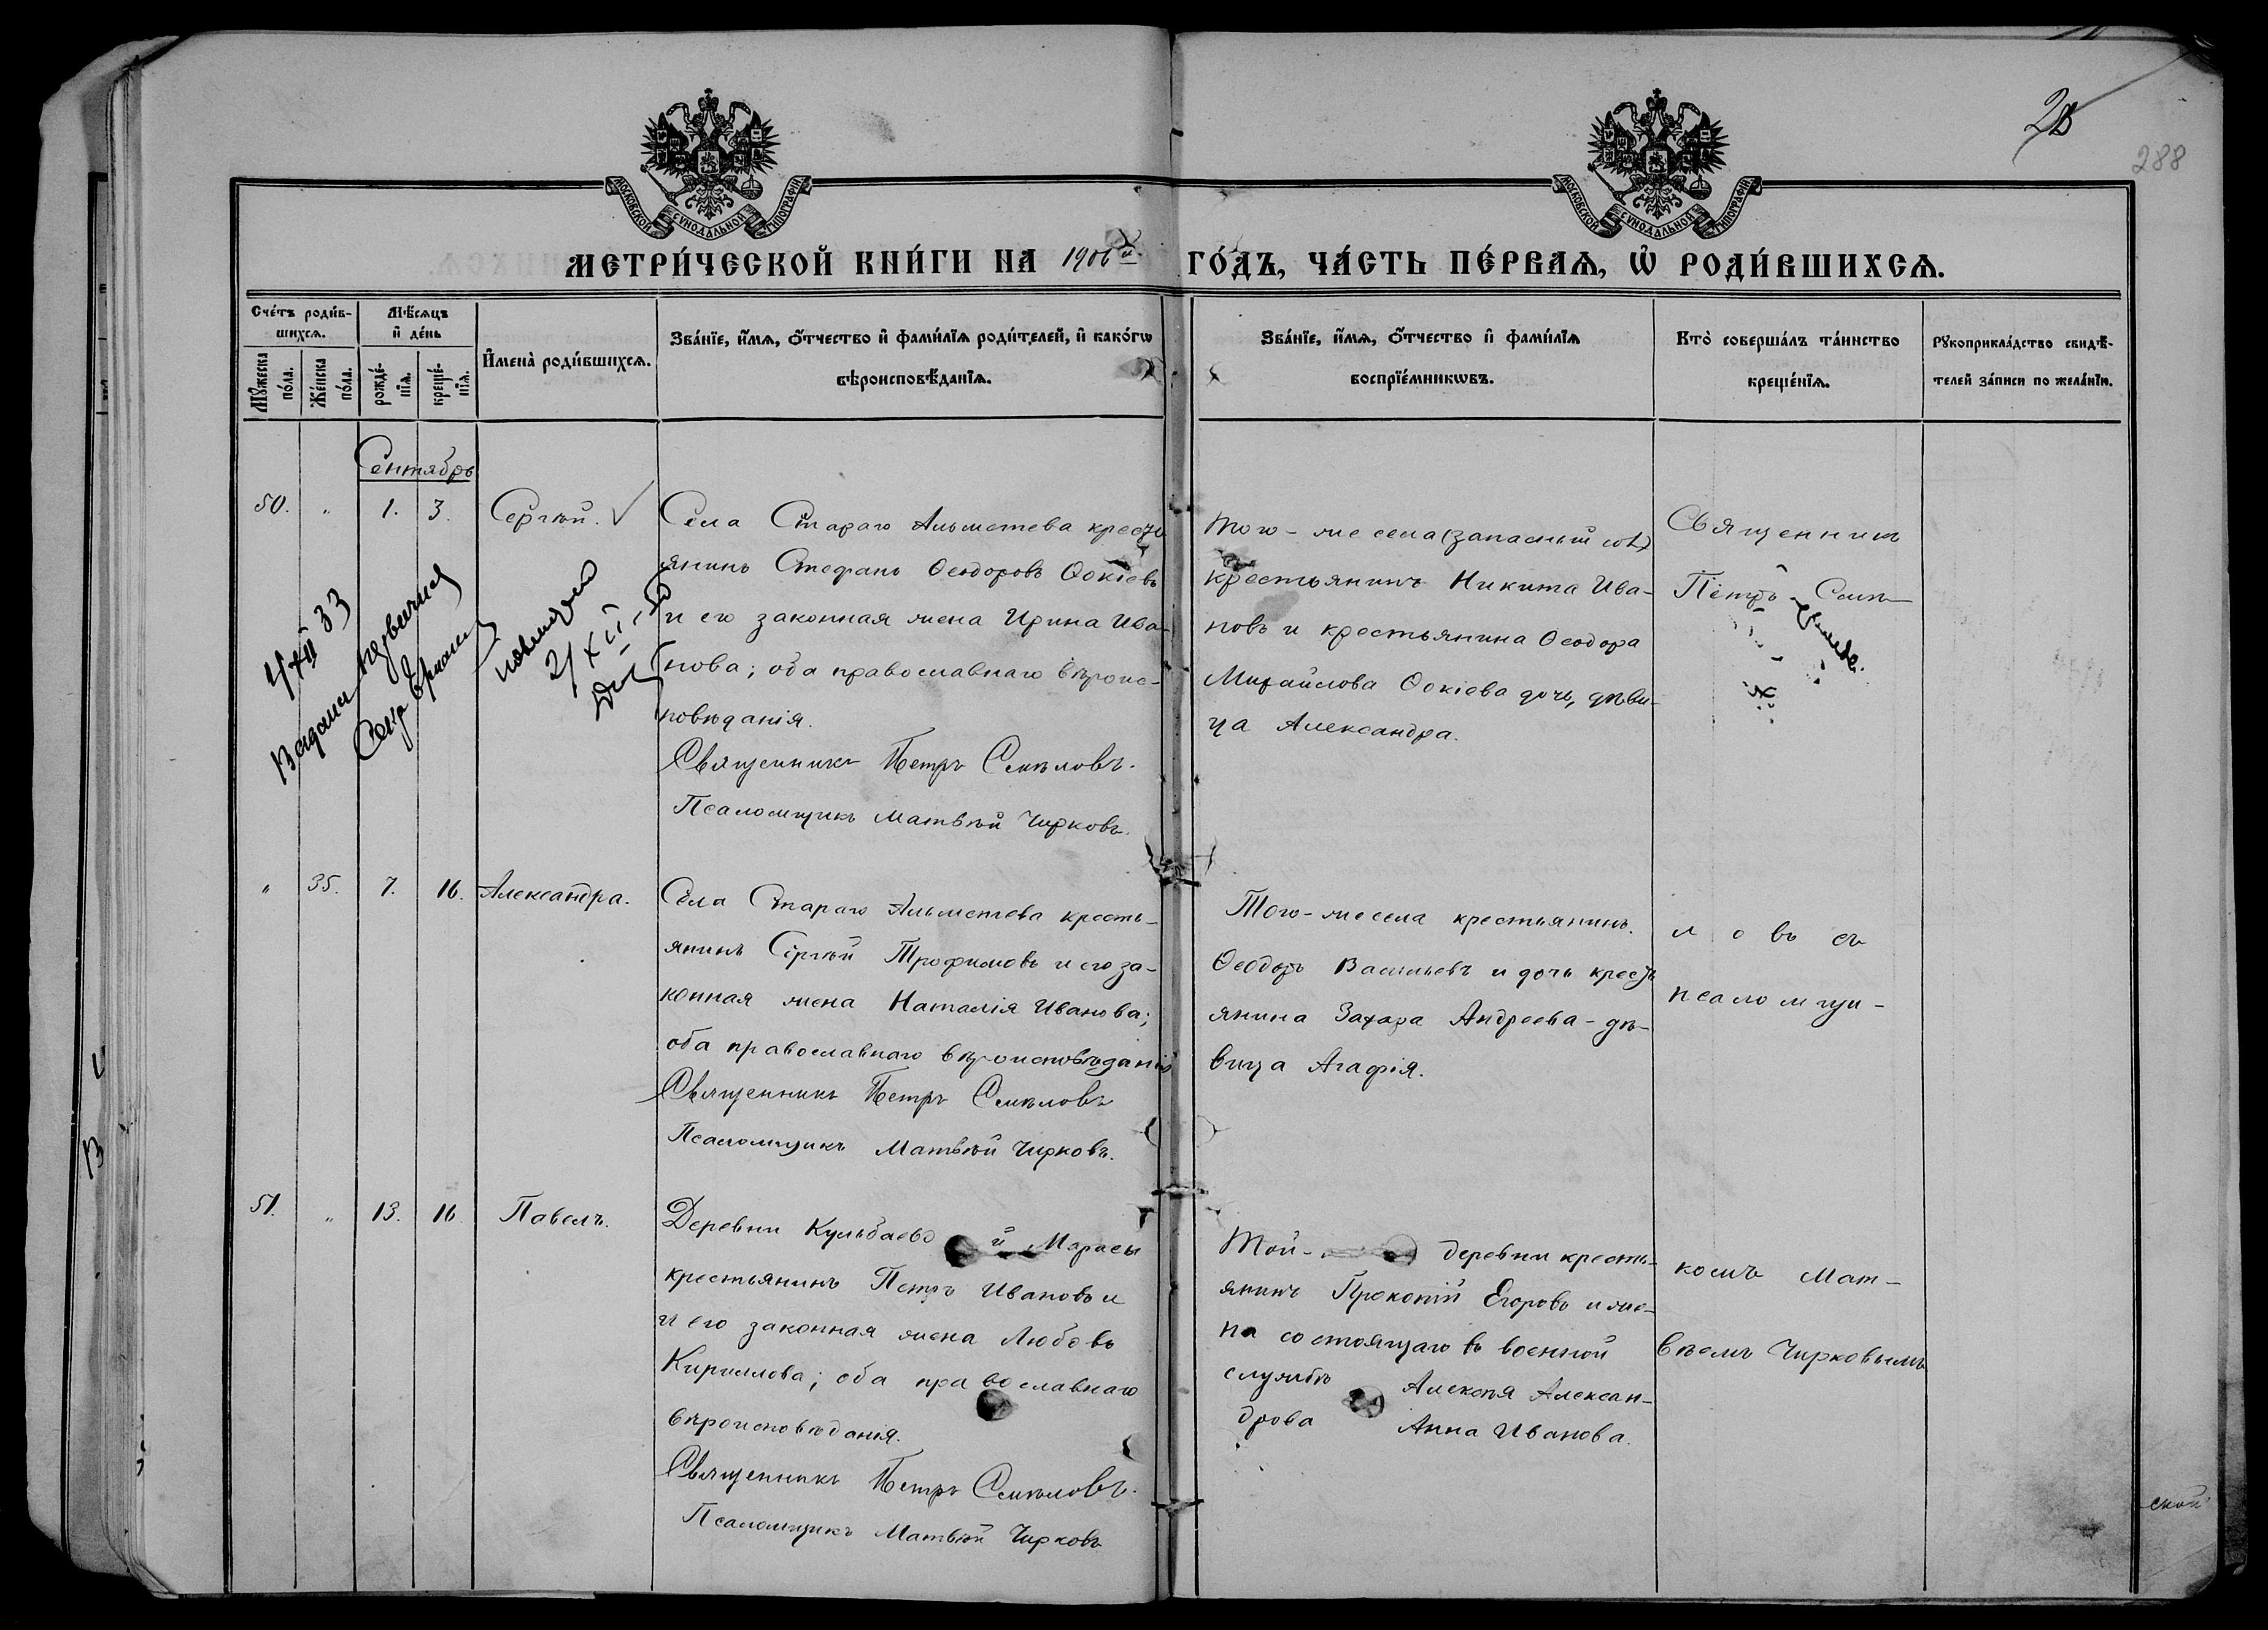 28
288
МОСКОВСКОЙ СѴНОДАЛЬНОЙ ТИПОГРАФІИ.
МОСКОВСКОЙ СѴНОДАЛЬНОЙ ТИПОГРАФІИ.
МЕТРИ́ЧЕСКОЙ КНИ́ГИ НА 1906й ГО́ДЪ, ЧА́СТЬ ПЕ́РВАѦ, Ѡ҆ РОДИ́ВШИХСѦ.
Сче́тъ роди́в-
шихсѧ.
Мѣ́сѧцъ
и҆ де́нь
Мꙋ́жеска
по́ла.
Же́нска
по́ла.
рожде́-
нїѧ.
креще́-
нїѧ.
И҆мена̀ роди́вшихсѧ.
Зва́нїе, и҆́мѧ, ѻ҆́тчество и҆ фами́лїѧ роди́телей, и҆ како́гѡ
вѣроисповѣ́данїѧ.
Зва́нїе, и҆́мѧ, ѻ҆́тчество и҆ фами́лїѧ
воспрїе́мникѡвъ.
Кто̀ соверша́лъ та́инство
креще́нїѧ.
Рꙋкоприкла́дство свидѣ́-
телей за́писи по жела́нїю.
Сентябрь
50. " 1. 3. Сергѣй. √
Села Стараго Альметева кресть
янинъ Стефанъ Ѳеодоровъ Ѳокіевъ
и его законная жена Ирина Ива-
нова; оба православнаго вѣроис-
повѣданія.
Священникъ Петръ Смѣловъ.
Псаломщикъ Матвѣй Чирковъ.
Того-же села (запасный
крестьянинъ Никита Ива-
новъ и крестьянина Ѳеодора
Михайлова Ѳокіева дочь, дѣви-
ца Александра.
Священникъ
Петръ Смѣ-
4/XII 33
21 XII
" 35. 7. 16. Александра.
Села Стараго Альметева кресть-
янинъ Сергѣй Трофимовъ и его за-
конная жена Наталія Иванова;
оба православнаго вѣроисповѣданія
Священникъ Петръ Смѣловъ
Псаломщикъ Матвѣй Чирковъ.
Того-же села крестьянинъ
Ѳеодоръ Васильевъ и дочь кресть
янина Захара Андреева - дѣ-
вица Агафія.
ловъ съ
псаломщи-
51. " 13. 16 Павелъ.
Деревни Кульбаево й Марасы
крестьянинъ Петръ Ивановъ и
и его законная жена Любовь
Кириллова; оба православнаго
вѣроисповѣданія.
Священникъ Петръ Смѣловъ.
Псаломщикъ Матвѣй Чирковъ
Той- деревни кресть-
янинъ Прокопій Егоровъ и же-
на состоящаго въ военной
службѣ Алексѣя Алексан-
дрова Анна Иванова.
комъ Мат-
вѣемъ Чирковымъ
ской